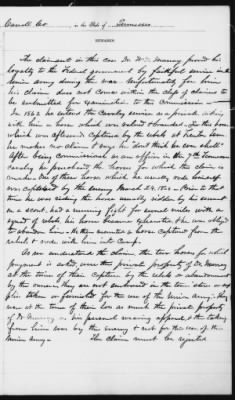 Carroll Co in the State of Tennessee
REMARKS.
The claimant in this case Dr. W. Murray proved his
loyalty to the Federal government by faithful service in the
Union army during the war. Unfortunately for him
his claim does not come within the class of claims to
be submitted for examination to this Commission —
In 1862 he entered the Cavalry service as a private, riding
with him a horse which was valued & branded. For this horse
which was afterwards captured by the rebels at Trenton Tenn
he makes no claim & says he "dont think he can shall"
After being commissioned as an officer in the 7th Tennessee
Cavalry he purchased the horses for which the claim is
made. One of these horses which he usually rode himself
was captured by the enemy March 24, 1864 — Prior to that
time he was riding the horse usually ridden by his servant
on a scout, had a running fight for several miles with a
squad of rebels his horse from exhaustion & he was obliged
to abandon him — He then mounted a horse captured from the
rebels & rode with him into Camp.
As we understand the claim, the two horses for which
payment is asked, were the private property of Dr. Murray
at the time of their capture by the rebels or abandonment
by the owner, they are not embraced in the term stores or sup
plies taken or furnished for the use of the Union Army. They
were at the time of their loss as much the private property
of Dr Murray as his personal wearing apparel, & the taking
from him was by the enemy & not for the use of the
Union army — The claim must be rejected